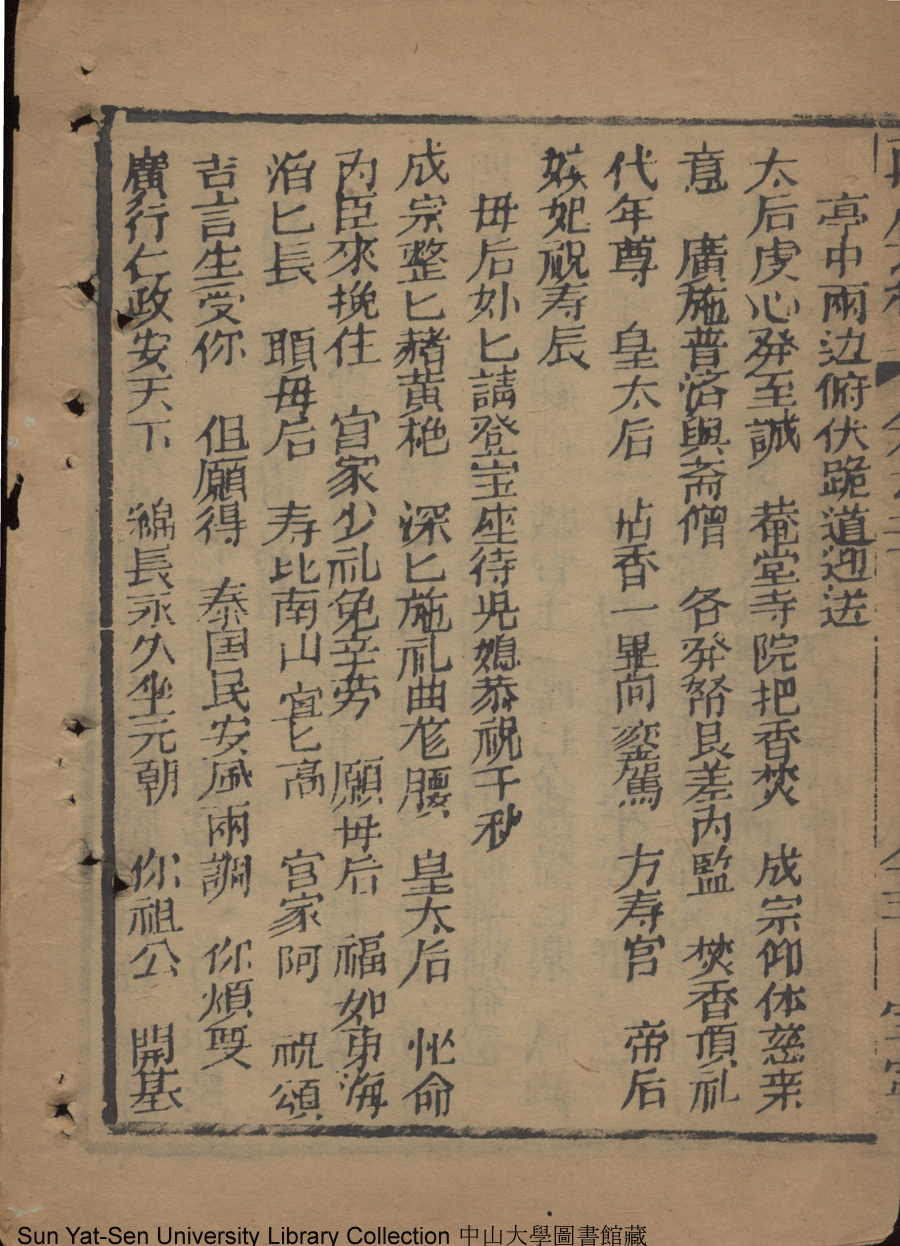 亭中兩边俯伏跪道迎送
太后虔心発至誠　菴堂寺院把香焚　成宗仰体慈来
意　廣施普济與斋僧　各発帑艮差内監　焚香頂礼
代年尊　皇太后　拈香一畢向鸞駕　方寿宫　帝后
嫔妃祝寿辰
毋后妙匕請登宝座待児媳恭祝千秋
成宗整匕赭黄袍　深匕施礼曲彦腰　皇太后　忙命
内臣來挽住　官家少礼免辛劳　願毋后　福如東海
滔匕長　願毋后　寿比南山宜匕高　官家阿　祝頌
吉言生受你　但願得　泰国民安风雨調　你須要
廣行仁政安天下　綿長永久坐元朝　你祖公　開基
Sun Yat-Sen University Library Collection 中山大學圖書館藏